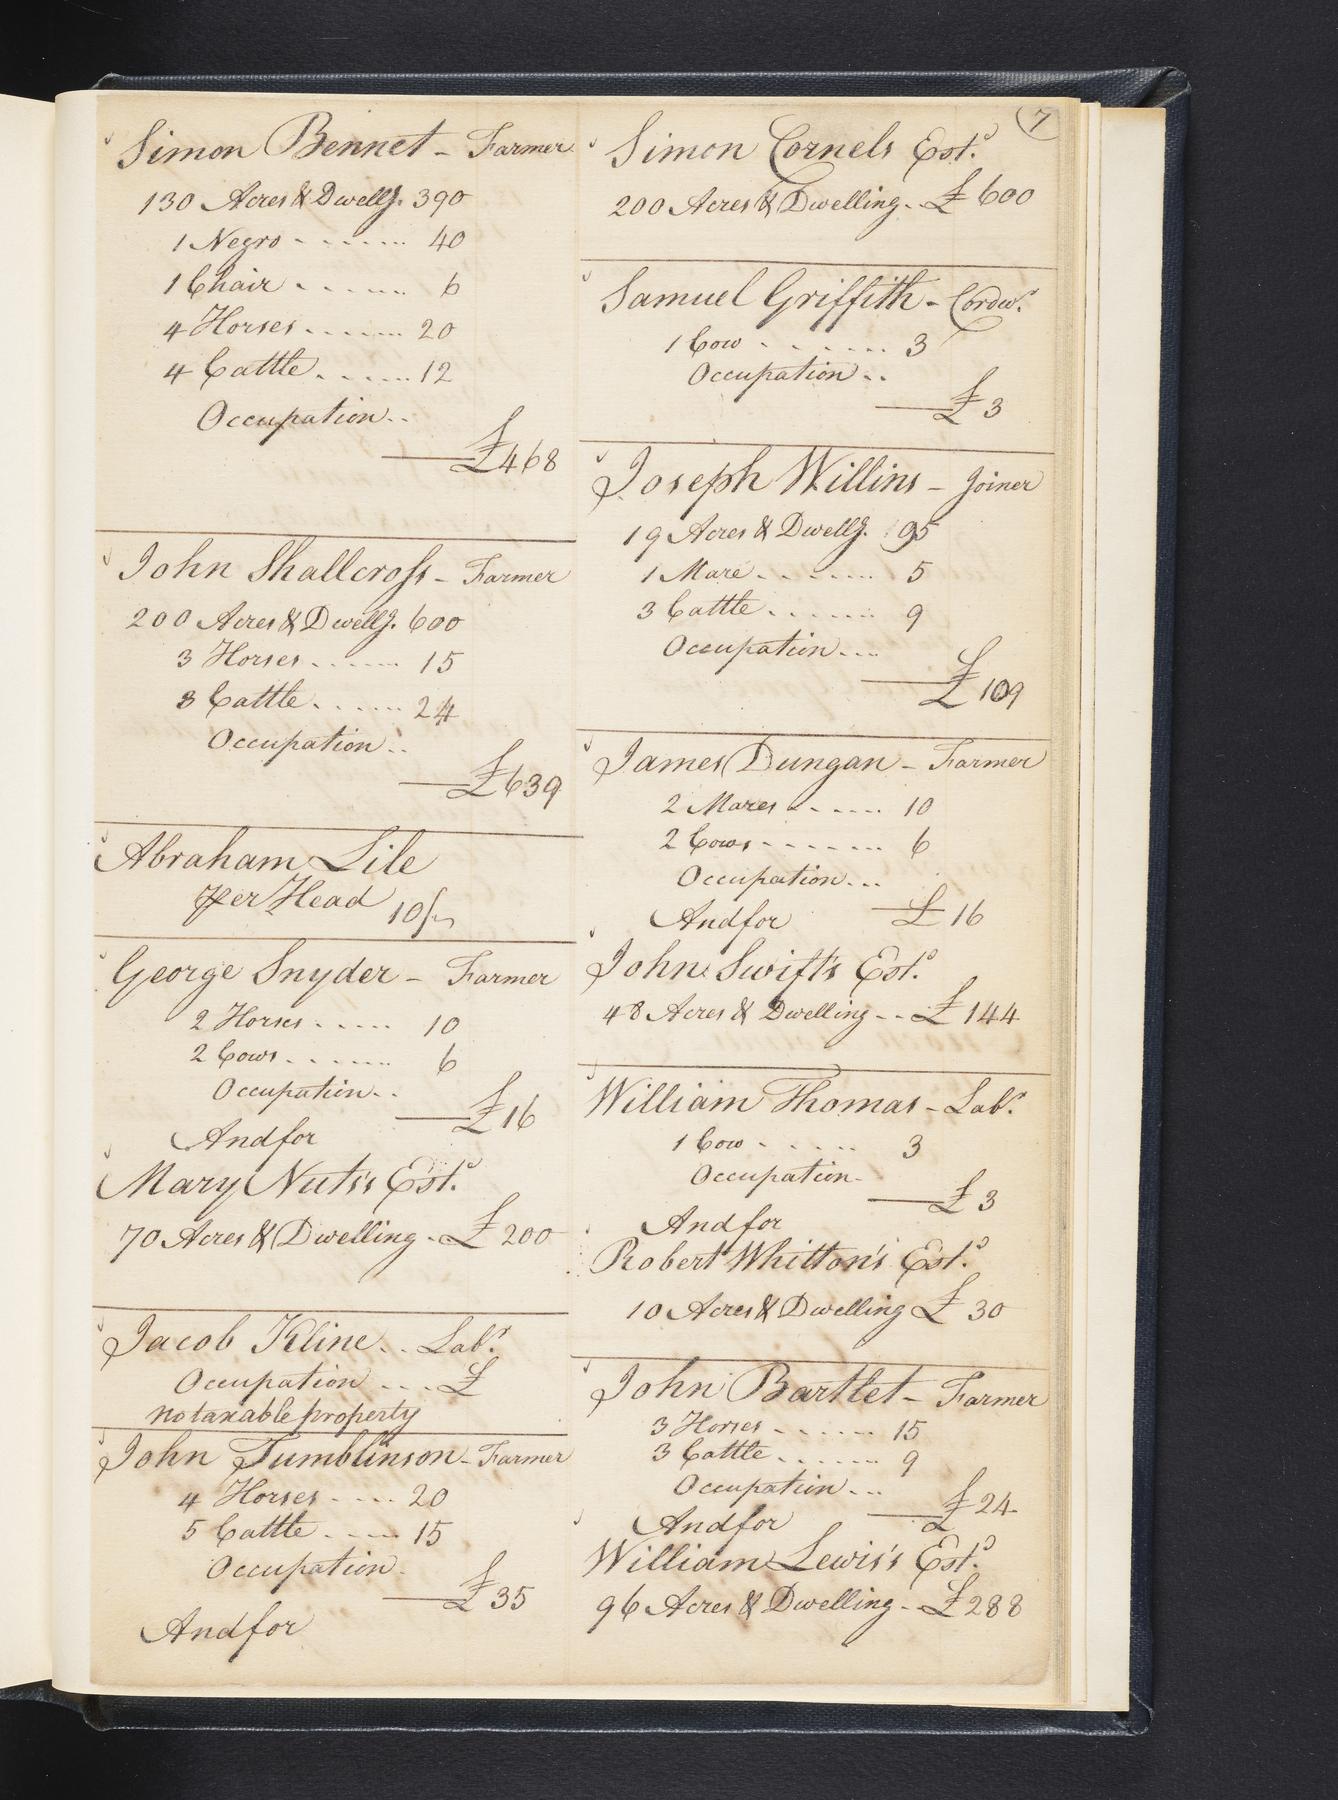 Simon Bennet - Farmer
130 Acres & Dwellg. 390
1 Negro - - - - - - - 40
1 Chair - - - - - - 6
4 Horses - - - - - - 20
4 Cattle - - - - - - 12
Occupation - -
£468
John Shallcross - Farmer
200 Acres & Dwellg. 600
3 Horses - - - - - - 15
8 Cattle - - - - - - 24
Occupation - -
£639
Abraham Lile
Per Head 10/
George Snyder - Farmer
2 Horses - - - - - 10
2 Cows - - - - - - 6
Occupation - -
£16
And for
Mary Nuts's Estd.
70 Acres & Dwelling - £200
Jacob Kline - - Labr.
Occupation - - - - £
no taxable property
John Tumblinson - Farmer
4 Horses - - - - 20
5 Cattle - - - - 15
Occupation -
£35
And for
7
Simon Cornels Estd.
200 Acres & Dwelling - - £600
Samuel Griffith - Cordwr.
1 Cow - - - - - - - 3
Occupation - -
£3
Joseph Willins - Joiner
19 Acres & Dwellg. 95
1 Mare - - - - - - 5
3 Cattle - - - - - - 9
Occupation - - -
£109
James Dungan - Farmer
2 Mares - - - - - 10
2 Cows - - - - - - - 6
Occupation - - -
And for £16
John Swift's Estd.
48 Acres & Dwelling - - £144
William Thomas - Labr.
1 Cow - - - - - - 3
Occupation -
£3
And for
Robert Whitton's Estd.
10 Acres & Dwelling £30
John Bartlet - Farmer
3 Horses - - - - - - 15
3 Cattle - - - - - - - 9
Occupation - - -
And for £24
William Lewis's Estd.
96 Acres & Dwelling - - £288